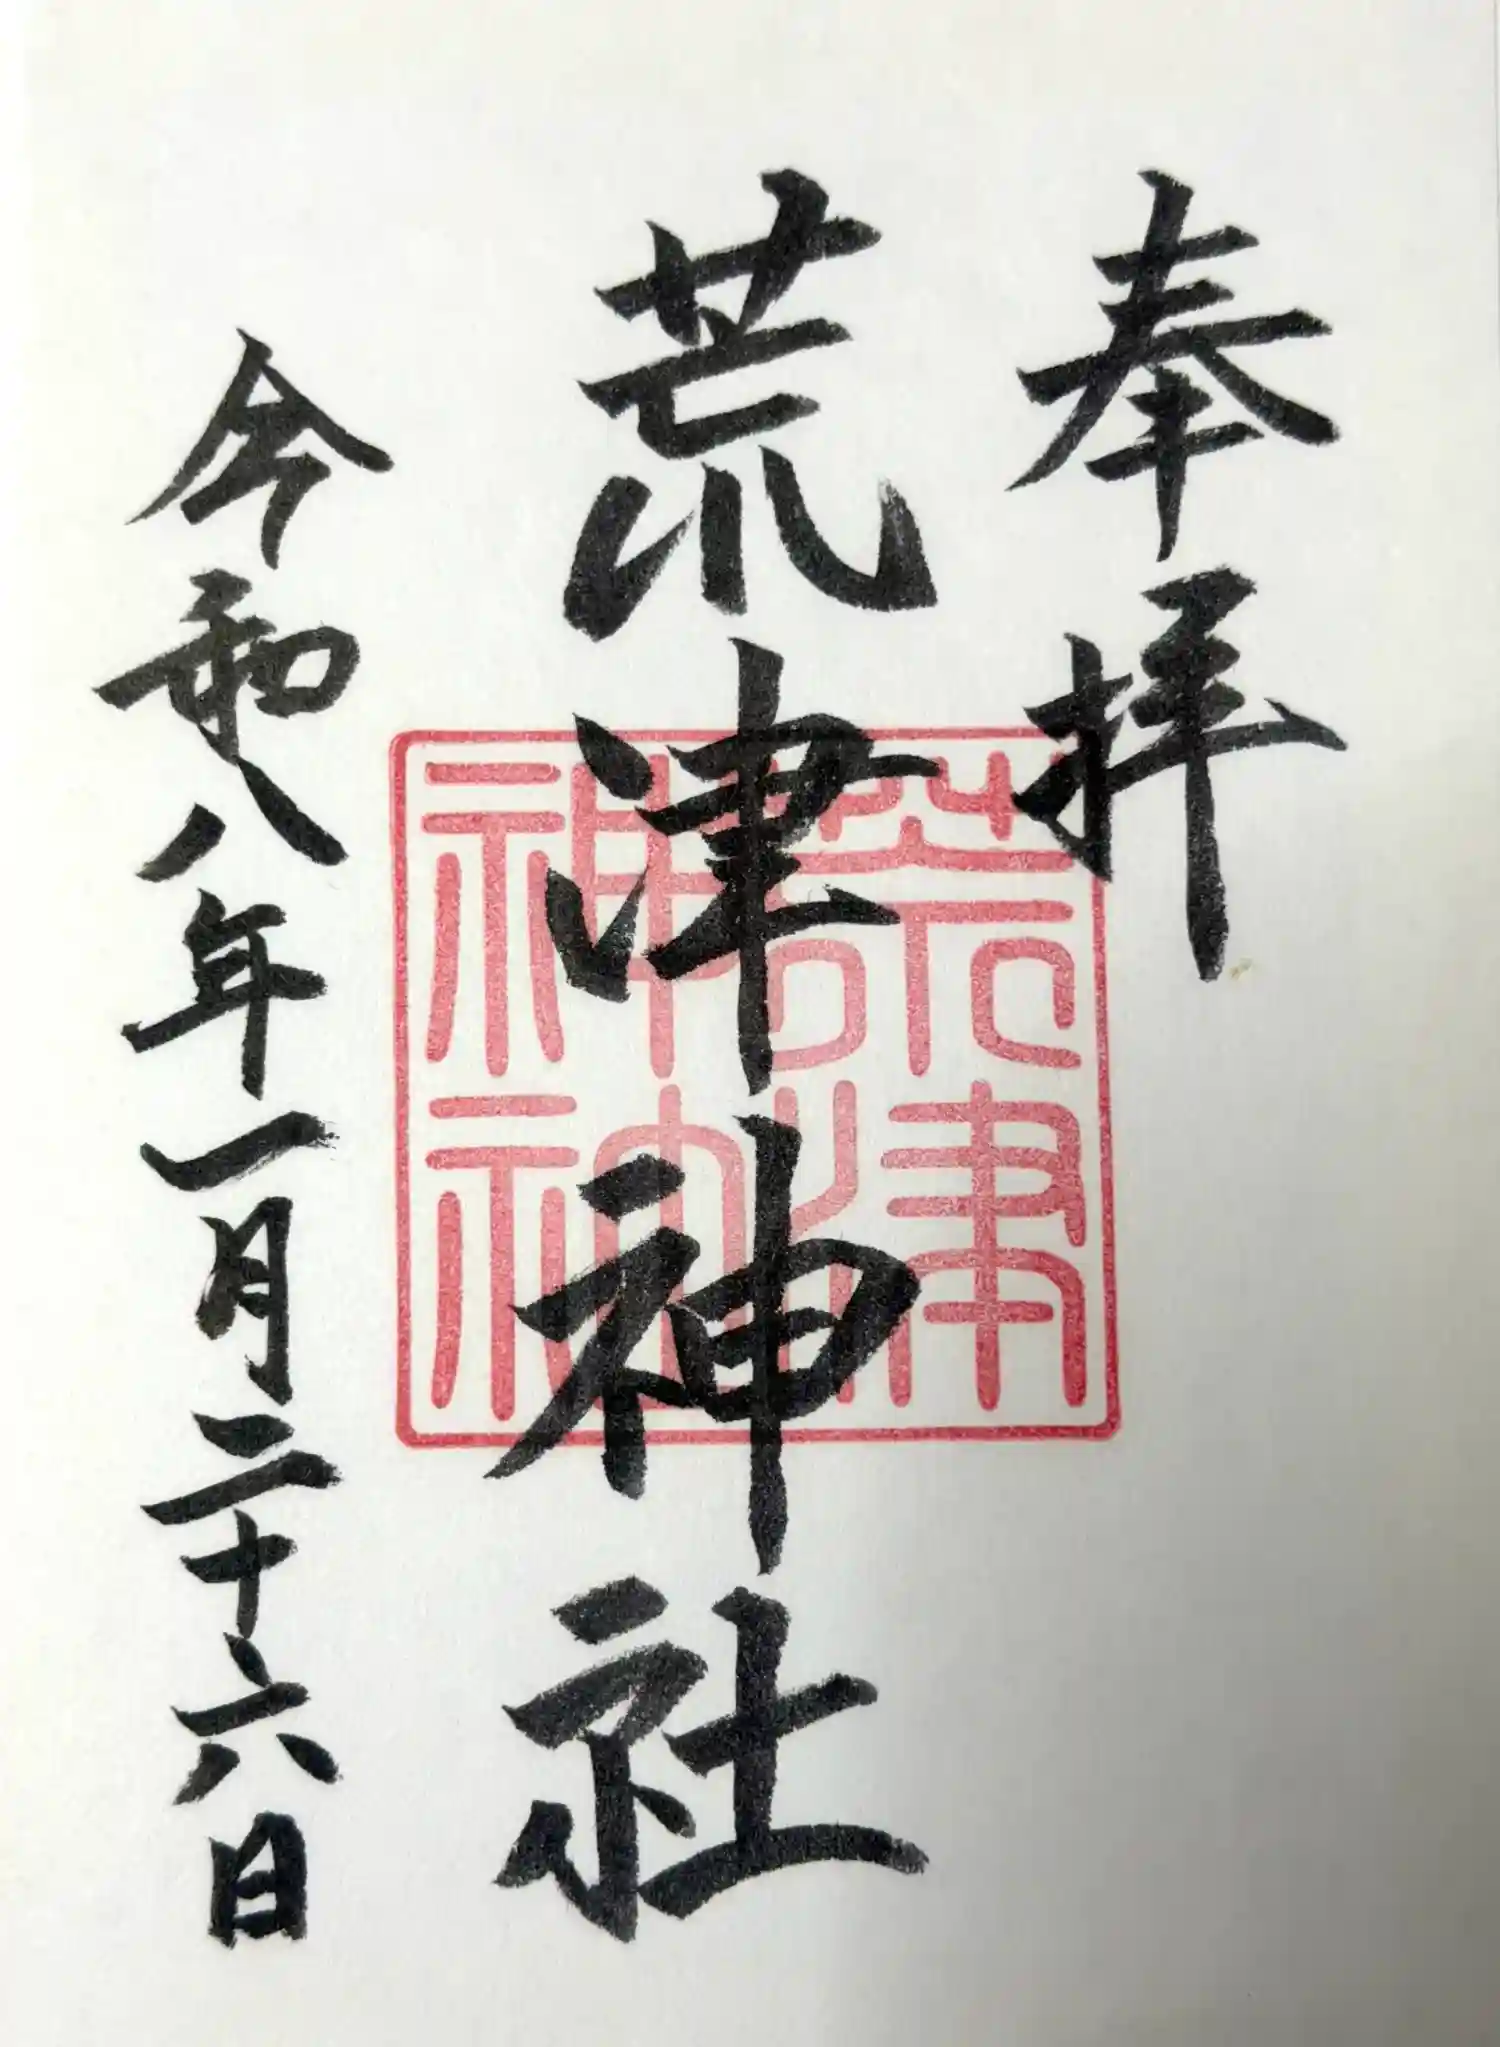 奉拝
荒津神社
荒津神社
令和八年一月二十六日